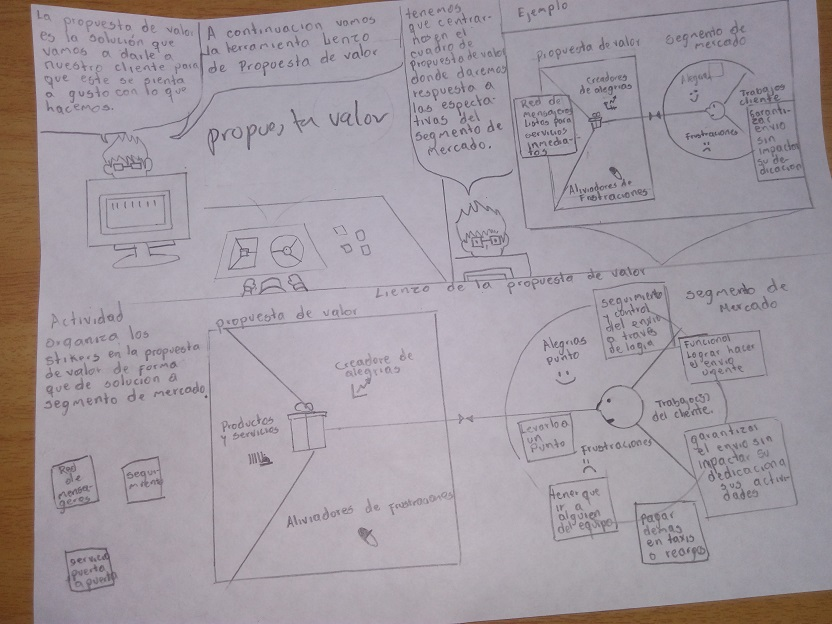 La propuesta de valor
es la solución que
vamos a darle a
nuestro cliente para
que este se sienta
a gusto con lo que
hacemos.
A continuación vamos
la herramienta Lienzo
de Propuesta de valor
propuesta valor
tenemos
que centrar-
nos en el
cuadro de
propuesta de valor
donde daremos
respuesta a
las expecta-
tivas del
segmento de
Mercado.
Ejemplo
propuesta de valor
segmento de
mercado
Creadores
de alegrias
Red de
mensajeros
listos para
servicios
inmedia-
tos
Aliviadores de
Frustraciones
Alegrias
Trabajos
cliente
Frustraciones
Garanti-
envio
sin
impactar
su de-
dicacion
Lienzo de la propuesta de valor
Actividad
organiza los
stikers en la propuesta
de valor de forma
que de solucion a
segmento de mercado.
Red
de
mensa-
geros
segui-
miento
servicio
puerta
a puerta
propuesta de valor
Creadore de
alegrias
Productos
y servicios
Aliviadores de Frustraciones
segmento de
Mercado
seguimiento
y control
del envio
a través
de
Alegrias
punto
Funcional
lograr hacer
el envio
urgente
Trabajo(s)
del cliente.
Levarlo a
un
Punto
Frustraciones
garantizar
el envio sin
impactar su
dedicacion a
sus activi-
dades
tener que
ir a
alguien
del equipo
Pagar
demas
en taxis
o